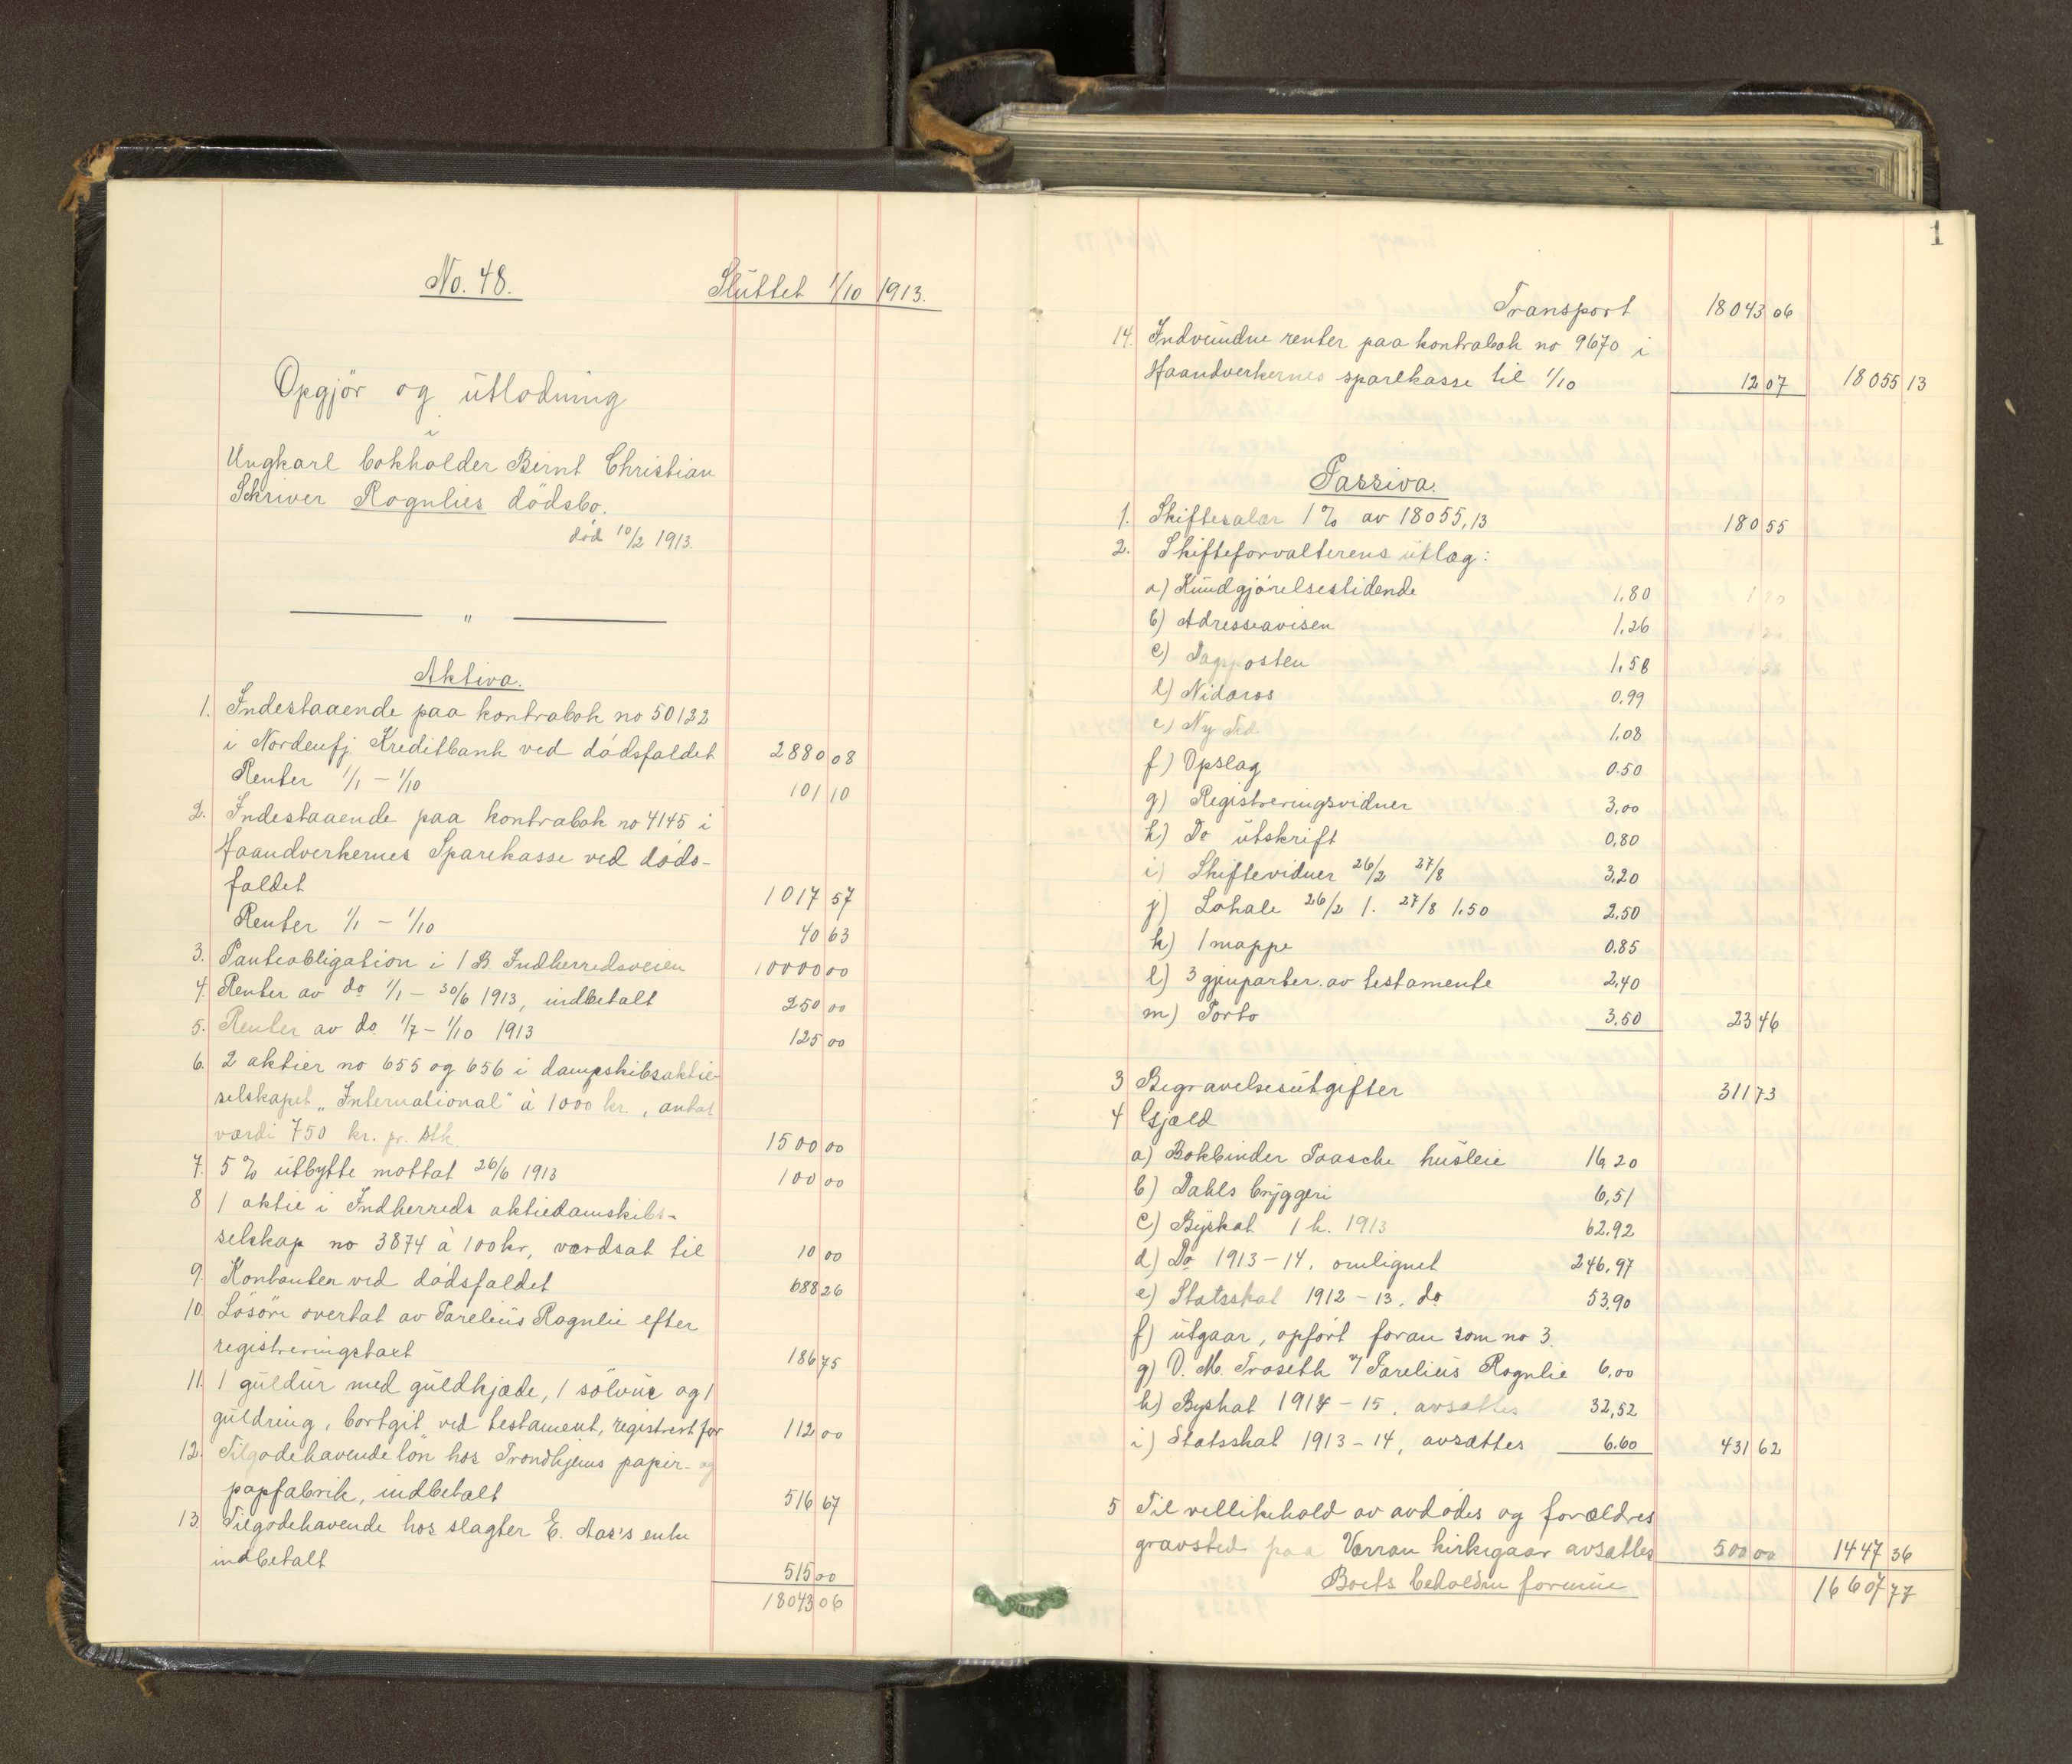 No. 48.
Sluttet 1/10 1913.
Opgjör og utlodning
i
Ungkarl bokholder Bernt Christian
Schriver Rognlies dödsbo.
död 10/2 1913.
"
Aktiva.
1. Indestaaende paa kontrabok no 50122
i Nordenfj. Kreditbank ved dödsfaldet 2880 08
Renter 1/1 - 1/10 101 10
2. Indestaaende paa kontrabok no 4145 i
Haandverkernes Sparekasse ved döds-
faldet 1017 57
Renter 1/1 - 1/10 40 63
3. Panteobligation i 1 B. Indherredsveien 10000 00
4. Renter av do 1/1 - 30/6 1913, indbetalt 250 00
5. Renter av do 1/7 - 1/10 1913 125 00
6. 2 aktier no 655 og 656 i dampskibsaktie-
selskapet "International" à 1000 kr., antat
værdi 750 kr. pr. stk. 1500 00
7. 5 % utbytte mottat 26/6 1913 100 00
8 1 aktie i Indherreds aktiedamskibs-
selskap no 3874 à 100 kr, værdsat til 10 00
9. Kontanter ved dödsfaldet 688 26
10. Lösöre overtat av Parelius Rognlie efter
registreringstaxt 186 75
11. 1 guldur med guldkjæde, 1 sölvur og 1
guldring, bortgit ved testament, registrert for 112 00
12. Tilgodehavende lön hos Trondhjems papir- og
papfabrik, indbetalt 516 67
13. Tilgodehavende hos slagter E. Aas's enke
indbetalt 515 00
18043 06
1
Transport 18043 06
14. Indvundne renter paa kontrabok no 9670 i
Haandverkernes sparekasse til 1/10 12 07 18055 13
Passiva.
1. Skiftesalær 1 % av 18055,13 180 55
2. Skifteforvalterens utlæg:
a) Kundgjörelsestidende 1,80
b) Adresseavisen 1,26
c) Dagsposten 1,58
d) Nidaros 0,99
e) Ny Tid 1,08
f) Opslag 0.50
g) Registreringsvidner 3,00
h) Do utskrift 0,80
i) Skiftevidner 26/2 27/8 3,20
j) Lokale 26/2 1. 27/8 1.50 2,50
k) 1 mappe 0,85
l) 3 gjenparter av testamente 2,40
m) Porto 3,50 23 46
3 Begravelsesutgifter 311 73
4 Gjæld
a) Bokbinder Paasche husleie 16,20
b) Dahls bryggeri 6,51
c) Byskat 1 h. 1913 62.92
d) Do 1913-14, omlignet 246,97
e) Statsskat 1912-13, do 53,90
f) utgaar, opfört foran som no 3.
g) O. M. Troseth v/ Parelius Rognlie 6,00
h) Byskat 1914-15, avsættes 32,52
i) Statsskat 1913-14, avsættes 6.60 431 62
5 Til vellikehold av avdödes og forældres
gravsted paa Verran kirkegaar avsættes 500 00 1447 36
Boets beholdne formue 16607 77